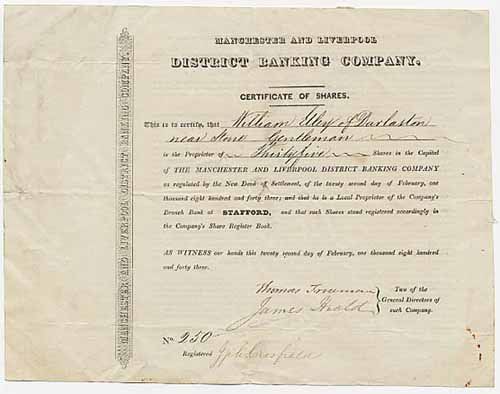 MANCHESTER AND LIVERPOOL DISTRICT BANKING COMPANY.
MANCHESTER AND LIVERPOOL
DISTRICT BANKING COMPANY.
CERTIFICATE OF SHARES.
This is to certify, that William of Darlaston
near Stone Gentleman
is the Proprietor of Thirtyfive Shares in the Capital
of THE MANCHESTER AND LIVERPOOL DISTRICT BANKING COMPANY
as regulated by the New Deed of Settlement, of the twenty second day of February, one
thousand eight hundred and forty three; and that he is a Local Proprietor of the Company's
Branch Bank of STAFFORD, and that such Shares stand registered accordingly in
the Company's Share Register Book.
AS WITNESS our hands this twenty second day of February, one thousand eight hundred
and forty three.
Thomas
James Heald
Two of the
General Directors of
such Company.
No. 250
Registered Crosfield